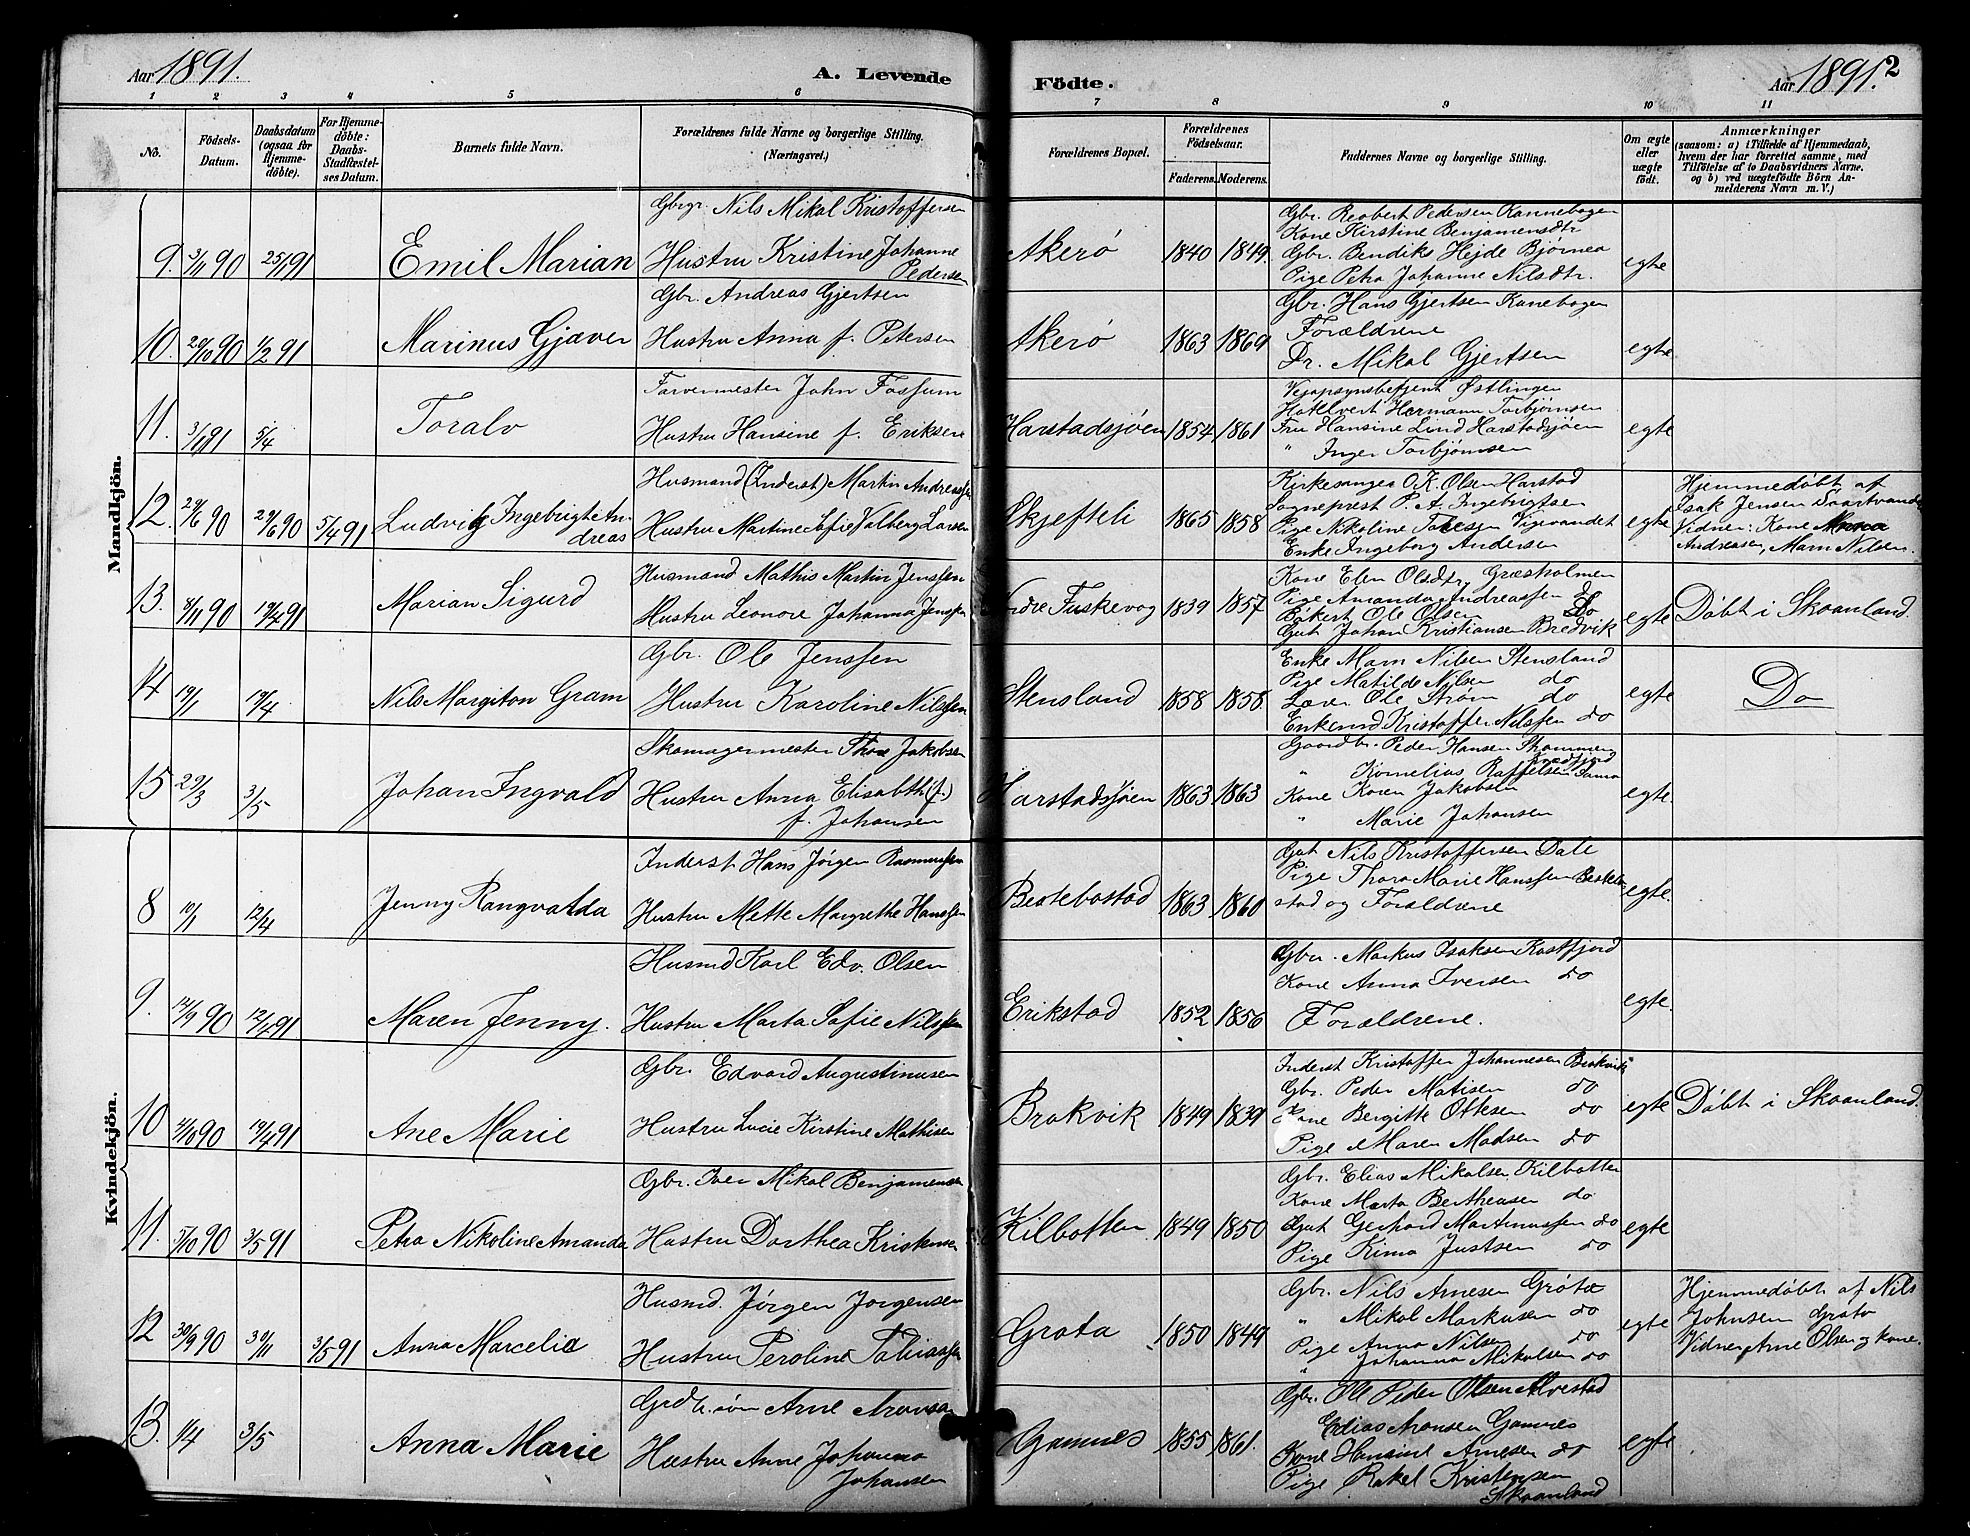 Aar 1891.
A. Levende
Födte.
Aar 1891. 2
1 2 3 4 5 6 7 8 9 10 11
No.
Födsels-Datum.
Daabsdatum (ogsaa for Hjemmedöbte).
For Hjemmedöbte: Daabs-Stadfæstelses Datum.
Barnets fulde Navn.
Forældrenes fulde Navne og borgerlige Stilling. (Næringsvei.)
Forældrenes Bopæl.
Forældrenes Födselsaar.
Faderens. Moderens.
Faddernes Navne og borgerlige Stilling.
Om ægte eller uægte födt.
Anmærkninger
(saasom: a) i Tilfælde af Hjemmedaab, hvem der har forrettet samme, med Tilföielse af to Daabsvidners Navne, og b) ved uægtefödte Börn Anmelderens Navn m. V.)
Mandkjön.
9. 3/11 90 25/1 91 Emil Marian
Gbrgr. Nils Mikal Kristoffersen
Hustru Kristine Johanne Pedersen
Akerø 1840 1849.
Gbr. Reabert Pedersen Kannebogen
Kone Kirstine Benjamensdtr
Gbr. Bendiks Hejde Bjørnea
Pige Petra Johanne Nilsdtr.
egte
10. 20/10 90 1/2 91 Marinus Gjæver
Gbr. Andreas Gjertsen
Hustru Anna f. Petersen
Akerø 1863 1869
Gbr. Hans Gjertsen Kanebogen
Forældrene
Dr. Mikal Gjertsen
egte
11. 3/1 91 5/4 Toralv
Farvermester John Fossum
Hustru Hansine f. Eriksen
Harstadsjøen 1854 1861
Vejopsynsbetjent Østlingen
Hotelvert Hermann Torbjørnsen
Fru Hansine Lind Harstadsjøen
" Inger Torbjørnsen
egte
12. 29/6 90 29/6 90 5/4 91 Ludvig Ingebrigt Andreas
Husmand (Inderst) Martin Andreassen
Hustru Martine Sofie Valberg Larsen
Skjefteli 1865 1858
Kirkesanger O. K. Olsen Harstad
Sogneprest P. A. Ingebrigtsen
Pige Nikoline Tollefsen Vigvandet
Enke Ingeborg Andersen
egte
Hjemmedøbt af
Isak Jensen
Vidner: Kone Anna
Andreasen, Marn Nilsen.
13. 8/11 90 19/4 91 Marian Sigurd
Husmand Mathis Martin Jenssen
Hustru Leonore Johanna Jenssen
Indre Fuskevog 1839 1857
Kone Elen Olsdtr, Græsholmen
Pige Amanda Andreassen do
Bøkert Ole Olsen Do
Gut Johan Kristiansen Bredvik
egte Døbt i Skaanland.
14 19/1 19/4 Nils Margiton Gram
Gbr. Ole Jenssen
Hustru Karoline Nilssen
Stensland 1858 1858.
Enke Marn Nilsen Stensland
Pige Matilde Nilsen do
Læver Ole Strøm do
Enkemd Kristoffer Nilssen do
egte Do
15 29/3 3/5 Johan Ingvald
Skomagermester Thore Jakobsen
Hustru Anna Elisabth (f.)
f. Johansen
Harstadsjøen 1863 1863
Gaardbr. Peder Hansen
" Kornelius Raffelsen
Kone Karen Jakobsen
" Marie Johansen
egte.
Kvindekjön.
8 10/1 12/4 Jenny Rangvalda
Inderst Hans Jørgen Rasmussen
Hustru Mette Margrethe Hanssen
Bestebostad 1863 1860
Gut Nils Kristoffersen Dale
Pige Thora Marie Hanssen Bestebo-
stad og Forældrene
egte.
9. 14/9 90 12/4 91 Maren Jenny.
Husmd Karl Edv. Olsen
Hustru Marta Sofie Nilssen
Erikstad 1852 1856
Gbr. Markus Isaksen Kastfjord
Kone Anna Iversen do
Forældrene.
egte
10 90 19/4 91 Ane Marie
Gbr. Edvard Augustinusen
Hustru Lucie Kirstine Mathisen
Brokvik 1849 1839
Inderst Kristoffer Johannesen Brokvik
Gbr. Peder Matisen do
Kone Bergitte Ottesen do
Pige Maren Madsen do
egte Døbt i Skaanland.
11. 5/10 90 3/5 91 Petra Nikoline Amanda
Gbr. Iver Mikal Benjamensen
Hustru Dorthea Kristensen
Kilbotten 1849 1850
Gbr. Elias Mikalsen Kilbotten
Kone Marta Bertheusen do
Gut Gerhard Martinussen do
Pige Kima Justsen do
egte
12 30/9 90 30/11 3/5 91 Anna Marcelie
Husmd. Jørgen Jorgensen
Hustru Peroline Tobiassen
Grøta 1850 1849
Gbr. Nils Arnesen Grøtæ
" Mikal Markusen do
Pige Anna Nilsen do
" Johanna Mikalsen do
egte
Hjemmedøbt af Nils
Johnsen Grøta
Vidner Arne Olsen og kone.
13. 1/4 3/5 Anna Marie
Grdb. søn Arne Aronsen
Hustru Anne Johanna
Johansen
Gamnes 1855 1861.
Gbr. Ole Peder Olsen Alvestad
Edias Aronsen Gamnes
Kone Hansine Arnesen do
Pige Rakel Kristensen
Skaanland
egte.